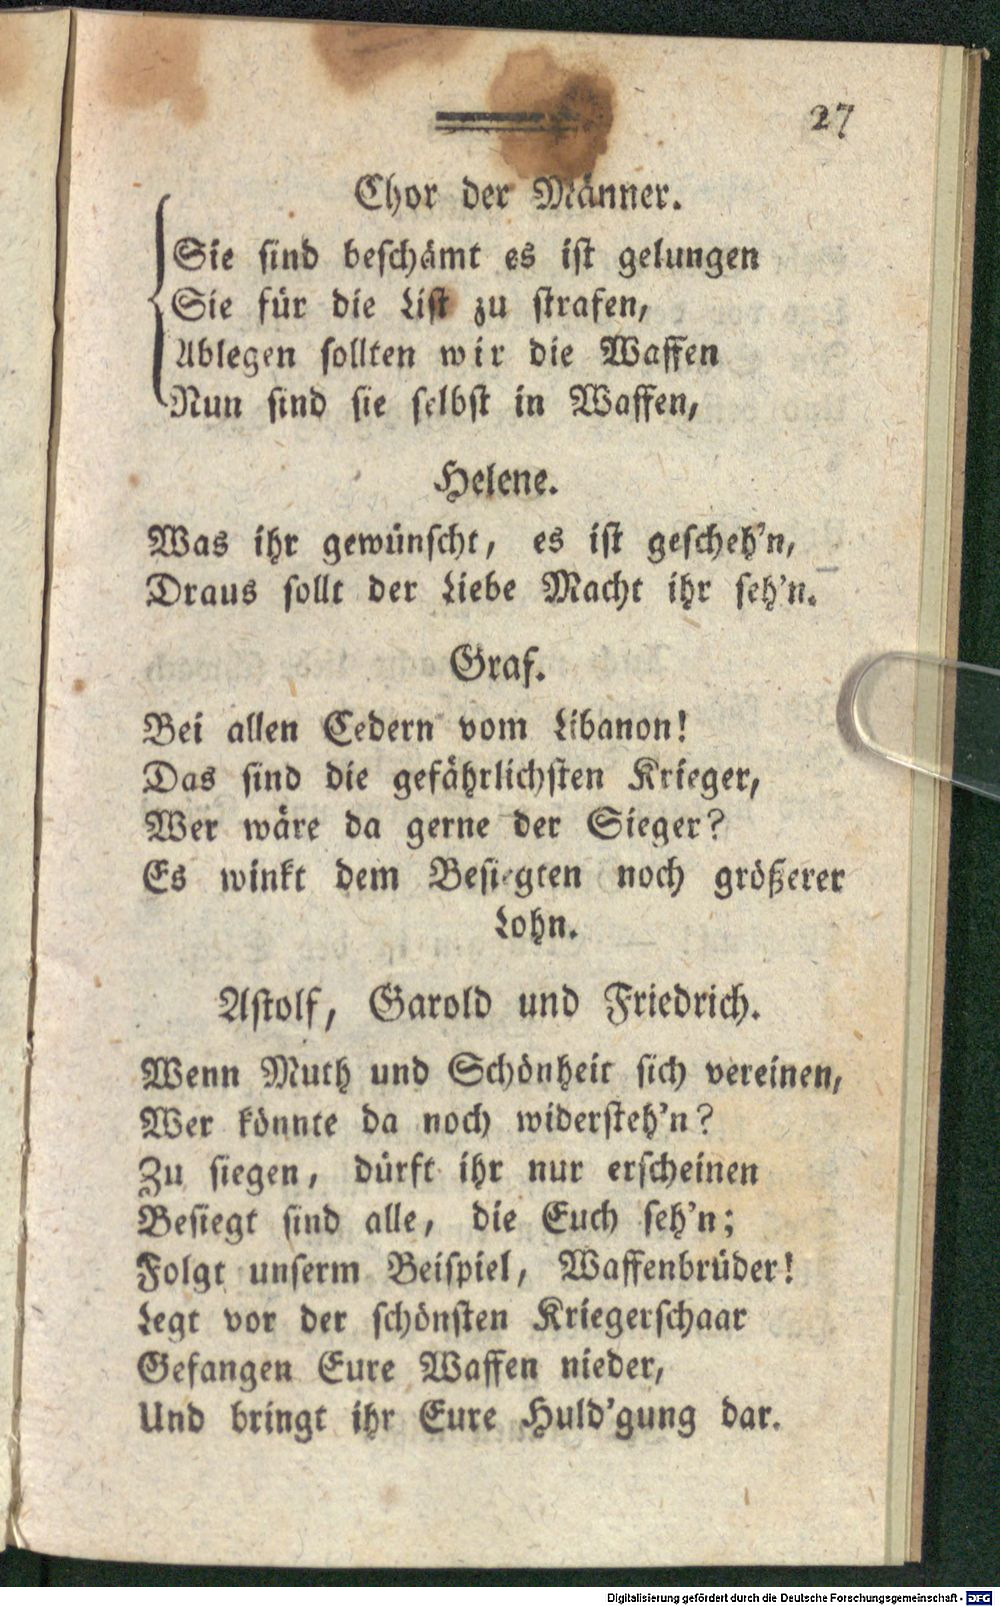 27
Chor der Männer.
Sie sind beschämt es ist gelungen
Sie für die List zu strafen,
Ablegen sollten wir die Waffen
Nun sind sie selbst in Waffen,
Helene.
Was ihr gewünscht, es ist gescheh'n,
Draus sollt der Liebe Macht ihr seh'n.
Graf.
Bei allen Cedern vom Libanon!
Das sind die gefährlichsten Krieger,
Wer wäre da gerne der Sieger?
Es winkt dem Besiegten noch größerer
Lohn.
Astolf, Garold und Friedrich.
Wenn Muth und Schönheit sich vereinen,
Wer könnte da noch widersteh'n?
Zu siegen, dürft ihr nur erscheinen
Besiegt sind alle, die Euch seh'n;
Folgt unserm Beispiel, Waffenbrüder!
Legt vor der schönsten Kriegerschaar
Gefangen Eure Waffen nieder,
Und bringt ihr Eure Huld'gung dar.
Digitalisierung gefördert durch die Deutsche Forschungsgemeinschaft - DFG